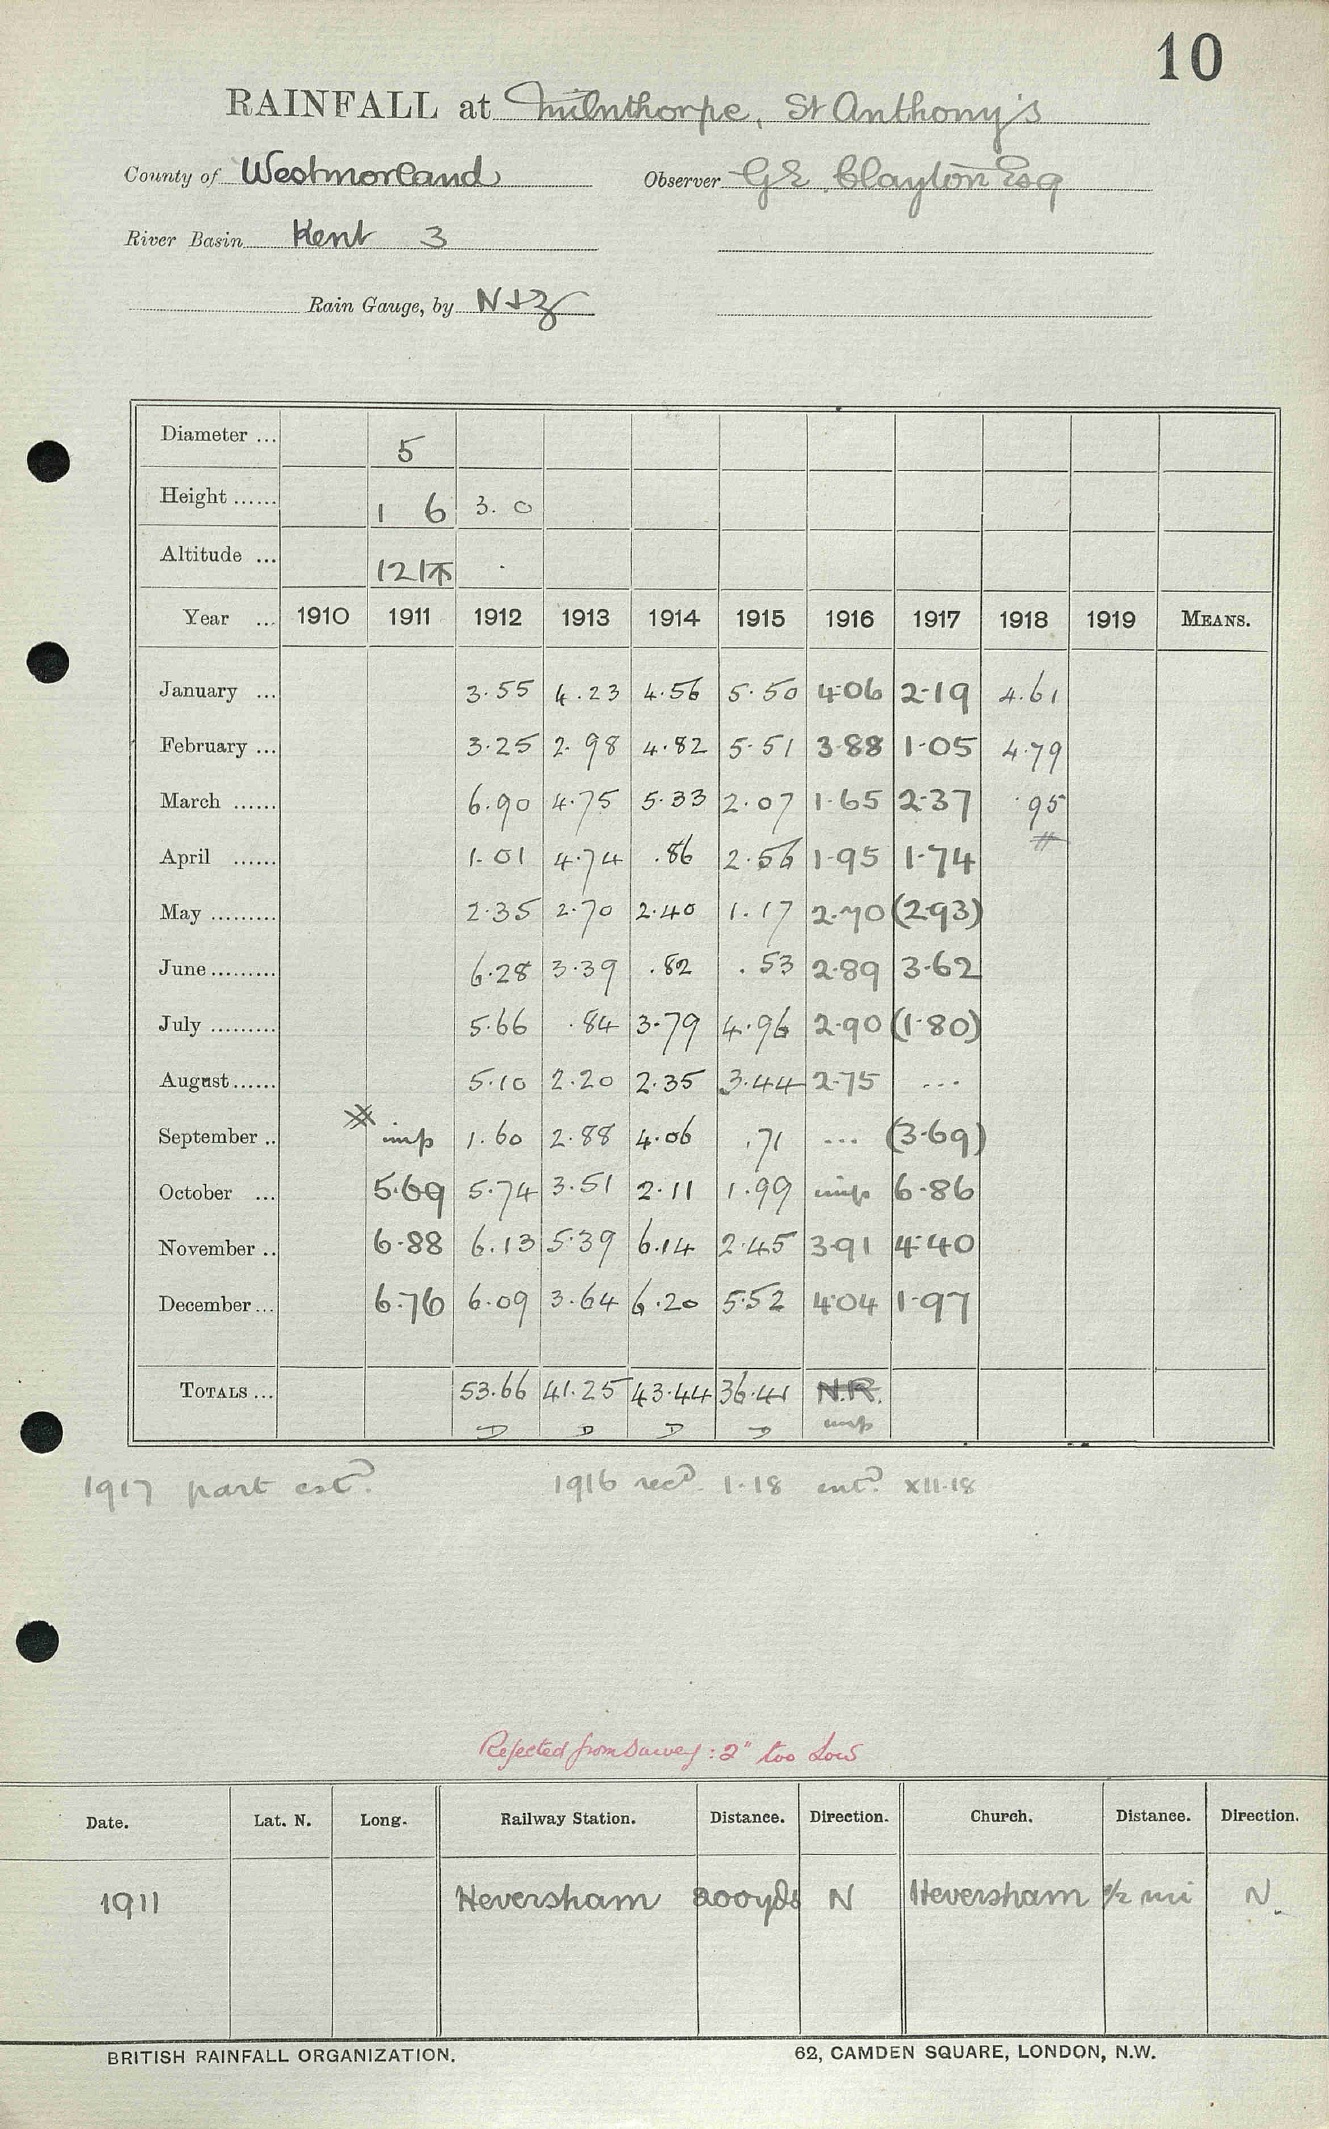 10
RAINFALL at Milnthorpe, St Anthony's
County of Westmorland Observer G E Clayton Esq
River Basin Kent 3
Rain Gauge, by N + Z
Diameter ... 5
Height ...... 1 6 3. 0
Altitude ... 121
Year ... 1910 1911 1912 1913 1914 1915 1916 1917 1918 1919 MEANS.
January ... 3.55 4.23 4.56 5.50 4.06 2.19 4.61
February ... 3.25 2.98 4.82 5.51 3.88 1.05 4.79
March ...... 6.90 4.75 5.33 2.07 1.65 2.37 .95
April ...... 1.01 4.74 .86 2.56 1.95 1.74
May ......... 2.35 2.70 2.40 1.17 2.70 (2.93)
June ......... 6.28 3.39 .82 .53 2.89 3.62
July ......... 5.66 .84 3.79 4.96 2.90 (1.80)
August ...... 5.10 2.20 2.35 3.44 2.75 ...
September .. imp 1.60 2.88 4.06 .71 ... (3.69)
October ... 5.69 5.74 3.51 2.11 1.99 imp 6.86
November .. 6.88 6.13 5.39 6.14 2.45 3.91 4.40
December ... 6.76 6.09 3.64 6.20 5.52 4.04 1.97
TOTALS ... 53.66 41.25 43.44 36.41 N.R.
D D D D imp
1917 part estd. 1916 recd. 1.18 entd. XII.18
Rejected from Survey : 2" too low
Date. Lat. N. Long. Railway Station. Distance. Direction. Church. Distance. Direction.
1911 Heversham 200yds N Heversham 1/2 mi N.
BRITISH RAINFALL ORGANIZATION. 62, CAMDEN SQUARE, LONDON, N.W.